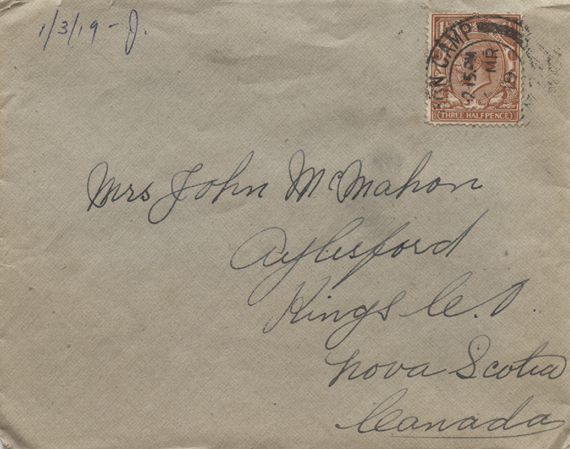 1/3/19 - J.
ON CAMP
2 15 PM
MR
THREE HALFPENCE
Mrs John McMahon
Aylesford
Kings Co.
Nova Scotia
Canada